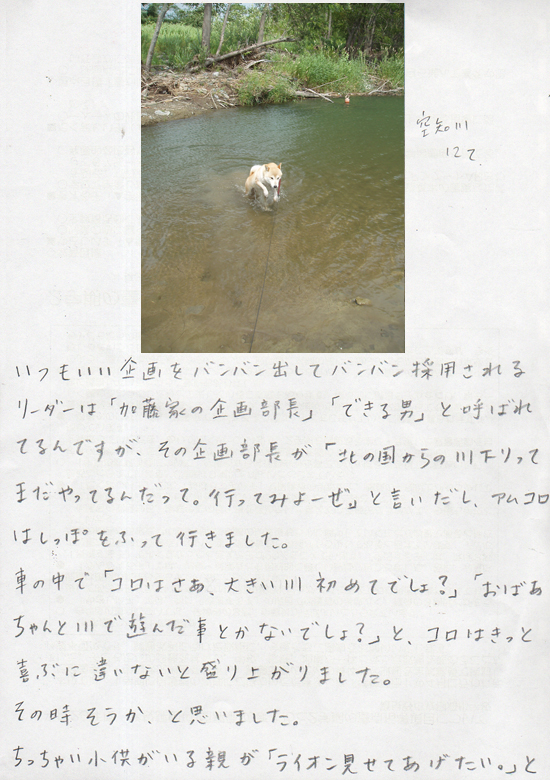 空知川
にて
いつもいい企画をバンバン出してバンバン採用される
リーダーは「加藤家の企画部長」「できる男」と呼ばれ
てるんですが、その企画部長が「北の国からの川下りって
まだやってるんだって。行ってみよーぜ」と言いだし、アムコロ
はしっぽをふって行きました。
車の中で「コロはさあ、大きい川初めてでしょ？」「おばあ
ちゃんと川で遊んだ事とかないでしょ？」と、コロはきっと
喜ぶに違いないと盛り上がりました。
その時そうか、と思いました。
ちっちゃい小供がいる親が「ライオン見せてあげたい。」と